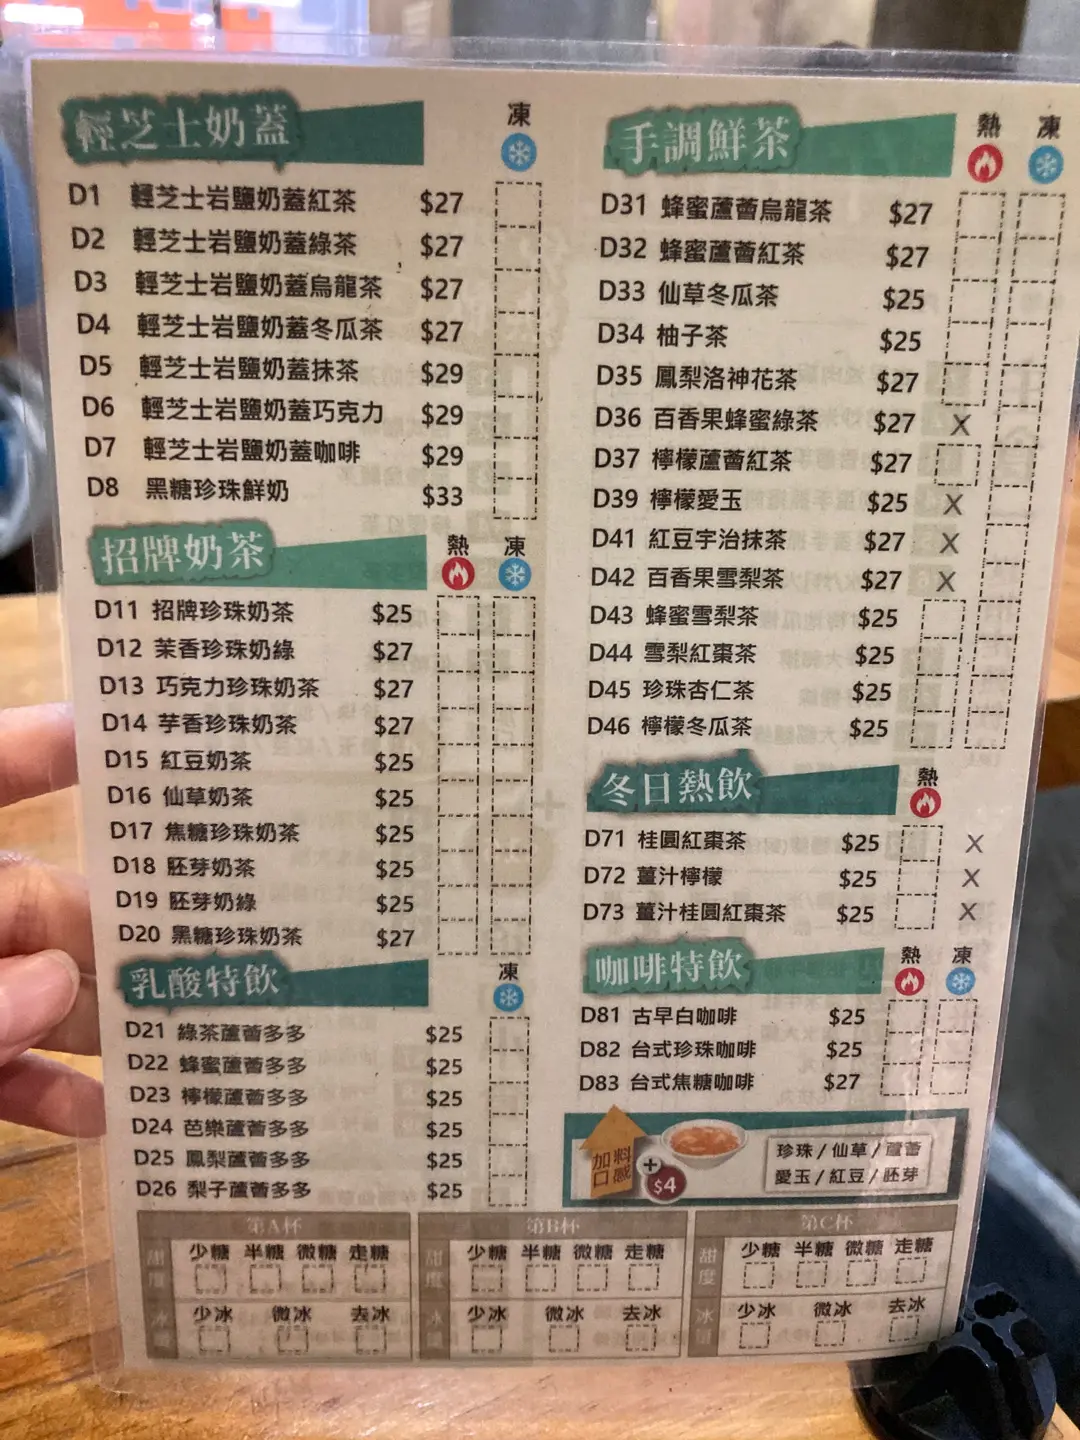 輕芝士奶蓋
凍
D1 輕芝士岩鹽奶蓋紅茶 $27
D2 輕芝士岩鹽奶蓋綠茶 $27
D3 輕芝士岩鹽奶蓋烏龍茶 $27
D4 輕芝士岩鹽奶蓋冬瓜茶 $27
D5 輕芝士岩鹽奶蓋抹茶 $29
D6 輕芝士岩鹽奶蓋巧克力 $29
D7 輕芝士岩鹽奶蓋咖啡 $29
D8 黑糖珍珠鮮奶 $33
招牌奶茶
熱 凍
D11 招牌珍珠奶茶 $25
D12 茉香珍珠奶綠 $27
D13 巧克力珍珠奶茶 $27
D14 芋香珍珠奶茶 $27
D15 紅豆奶茶 $25
D16 仙草奶茶 $25
D17 焦糖珍珠奶茶 $25
D18 胚芽奶茶 $25
D19 胚芽奶綠 $25
D20 黑糖珍珠奶茶 $27
乳酸特飲
凍
D21 綠茶蘆薈多多 $25
D22 蜂蜜蘆薈多多 $25
D23 檸檬蘆薈多多 $25
D24 芭樂蘆薈多多 $25
D25 鳳梨蘆薈多多 $25
D26 梨子蘆薈多多 $25
手調鮮茶
熱 凍
D31 蜂蜜蘆薈烏龍茶 $27
D32 蜂蜜蘆薈紅茶 $27
D33 仙草冬瓜茶 $25
D34 柚子茶 $25
D35 鳳梨洛神花茶 $27
D36 百香果蜂蜜綠茶 $27 X
D37 檸檬蘆薈紅茶 $27
D39 檸檬愛玉 $25 X
D41 紅豆宇治抹茶 $27 X
D42 百香果雪梨茶 $27 X
D43 蜂蜜雪梨茶 $25
D44 雪梨紅棗茶 $25
D45 珍珠杏仁茶 $25
D46 檸檬冬瓜茶 $25
冬日熱飲
熱
D71 桂圓紅棗茶 $25 X
D72 薑汁檸檬 $25 X
D73 薑汁桂圓紅棗茶 $25 X
咖啡特飲
熱 凍
D81 古早白咖啡 $25
D82 台式珍珠咖啡 $25
D83 台式焦糖咖啡 $27
加料
口感
+
$4
珍珠/仙草/蘆薈
愛玉/紅豆/胚芽
第A杯 第B杯 第C杯
甜度 少糖 半糖 微糖 走糖 甜度 少糖 半糖 微糖 走糖 甜度 少糖 半糖 微糖 走糖
冰量 少冰 微冰 去冰 冰量 少冰 微冰 去冰 冰量 少冰 微冰 去冰